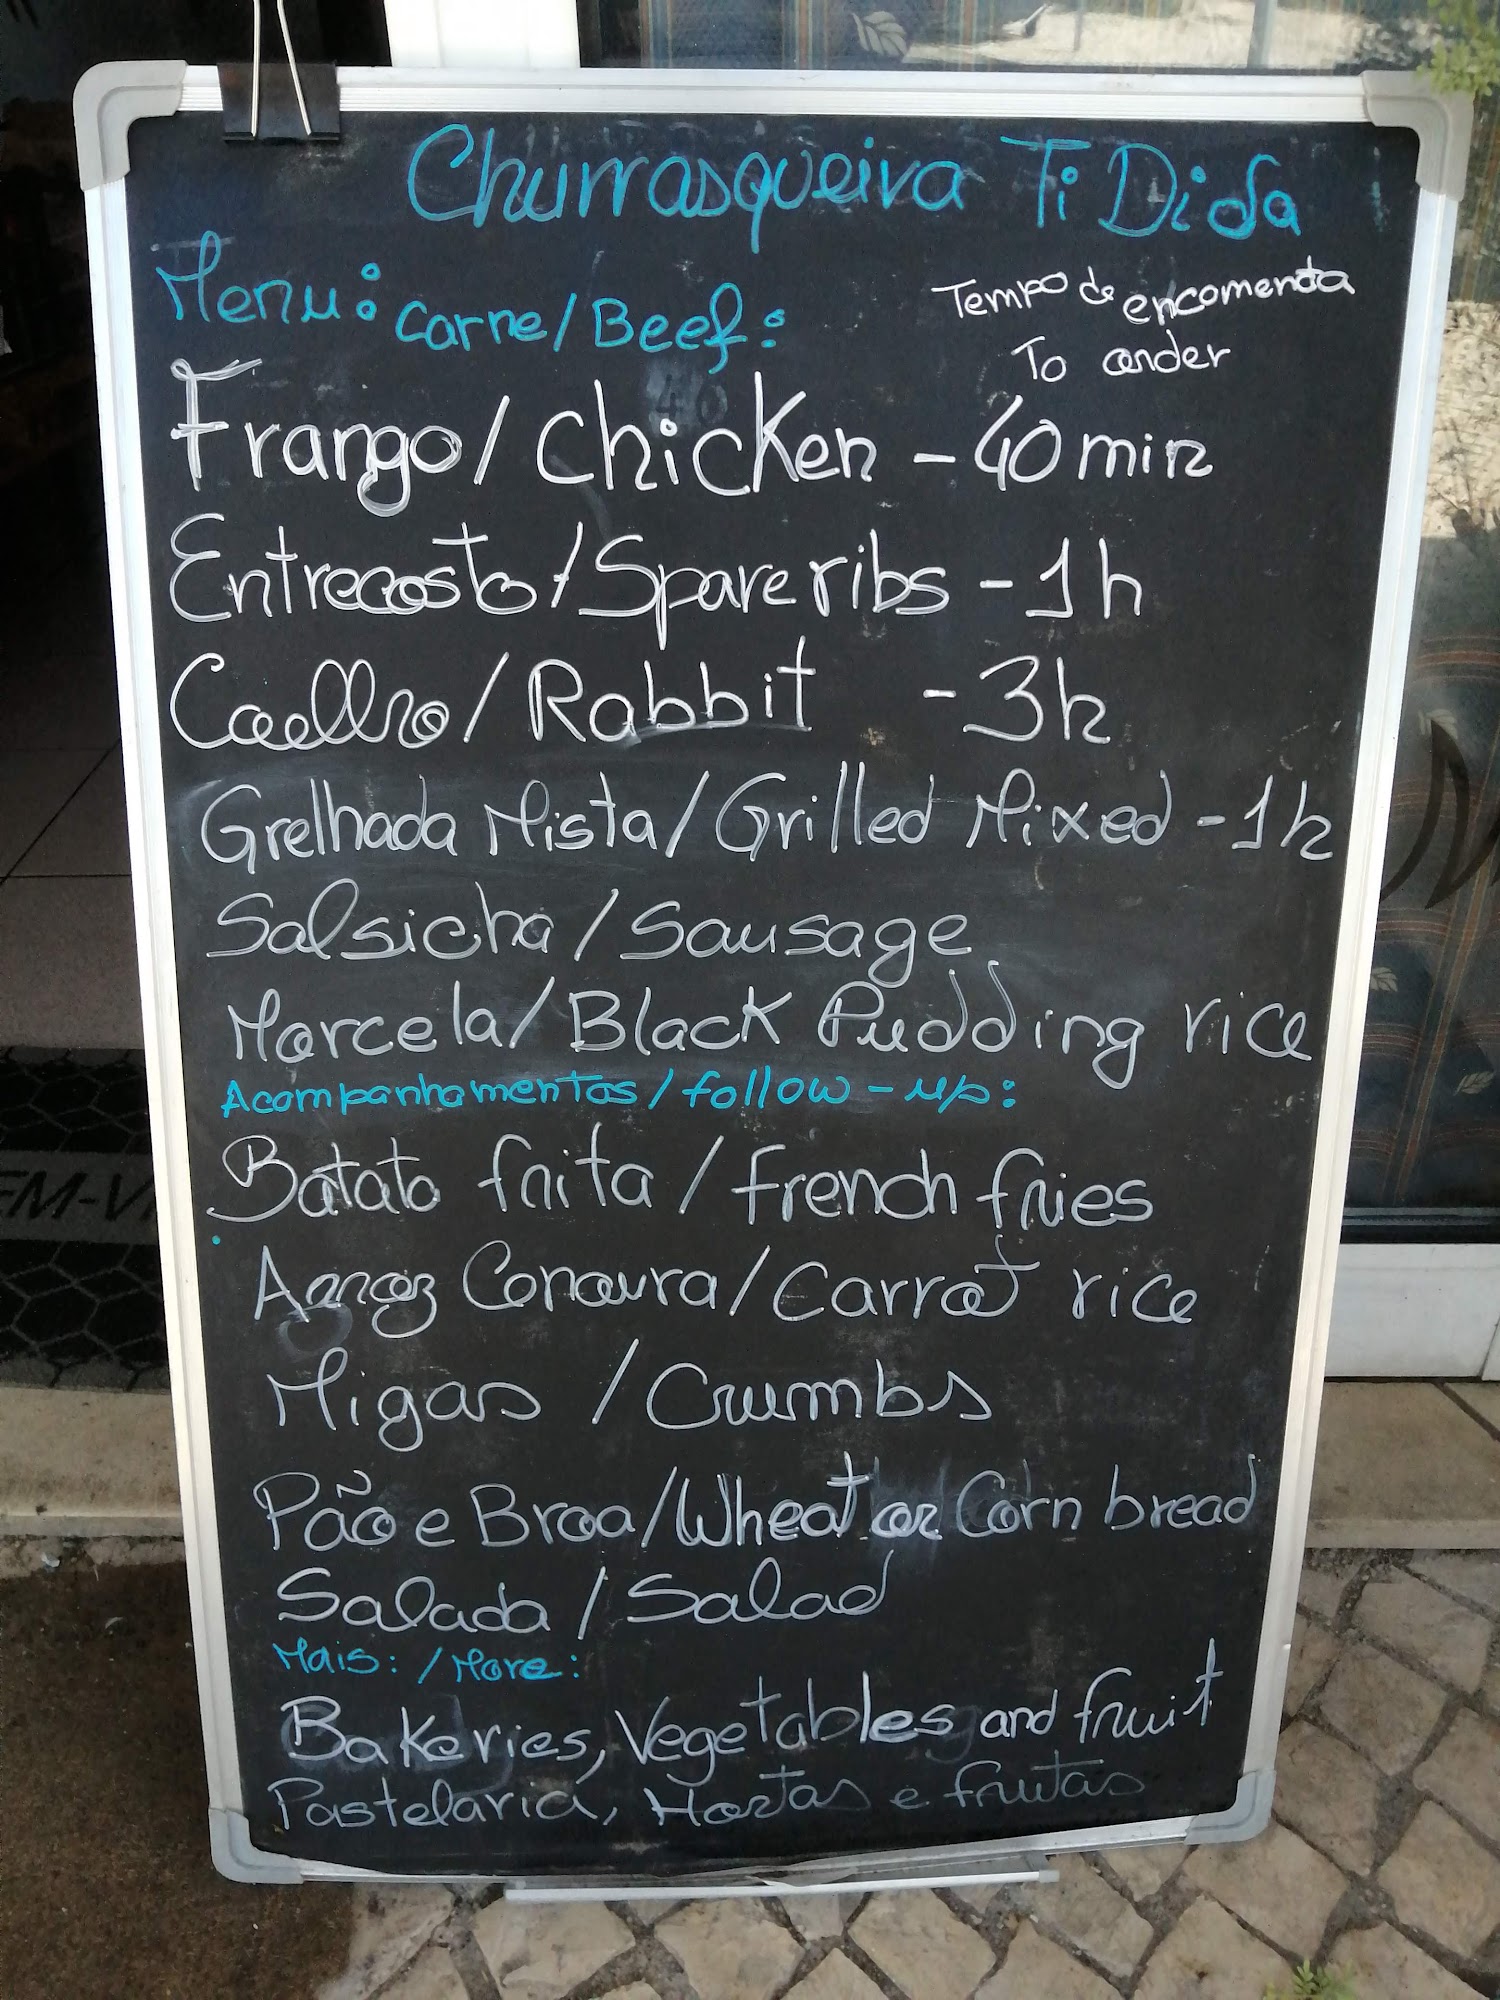 Churrasqueira Ti Dida
Menu: Carne/Beef:
Tempo de encomenda
To order
Frango/Chicken - 40 min
Entrecosto/Spare ribs - 1h
Coelho/Rabbit - 3h
Grelhada Mista/Grilled Mixed - 1h
Salsicha/Sausage
Morcela/Black Pudding rice
Acompanhamentos/follow-up:
Batata frita/French fries
Arroz Cenoura/Carrot rice
Migas/Crumbs
Pão e Broa/Wheat or Corn bread
Salada/Salad
Mais:/More:
Bakeries, Vegetables and fruit
Pastelaria, Hortas e frutas